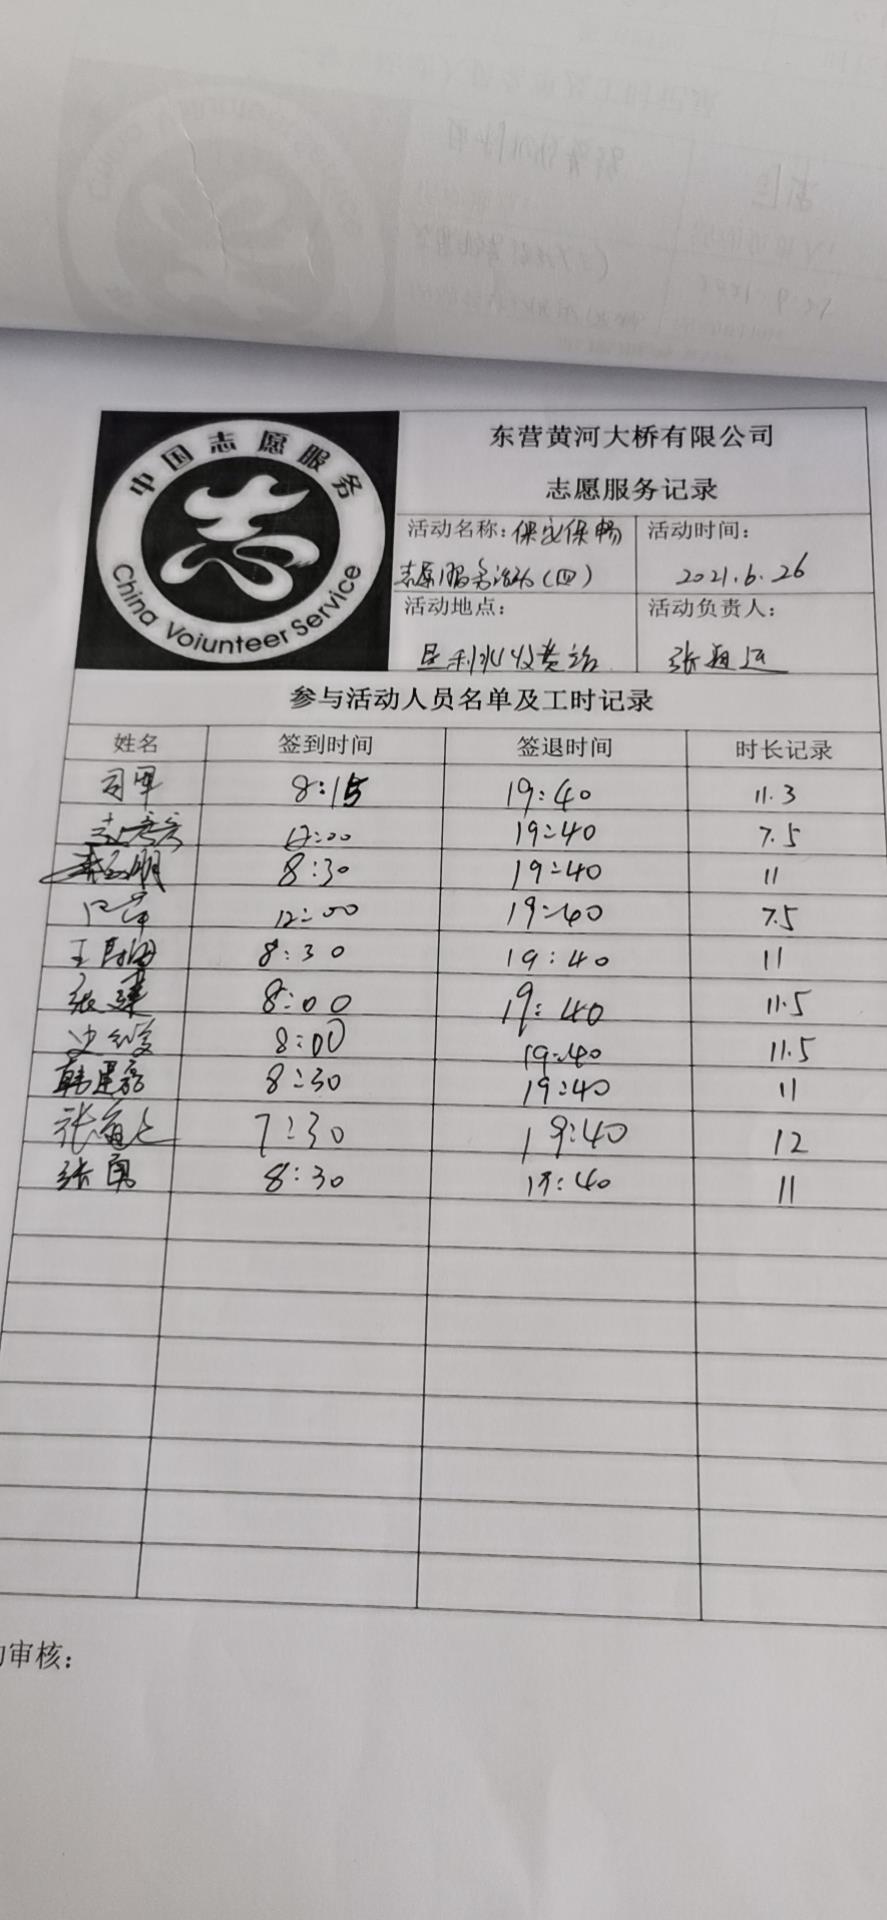 中国志愿服务
China Voiunteer Service
东营黄河大桥有限公司
志愿服务记录
活动名称：保安保畅
志愿服务活动（四）
活动时间：
2021.6.26
活动地点：
垦利北收费站
活动负责人：
参与活动人员名单及工时记录
姓名 签到时间 签退时间 时长记录
司军 8:15 19:40 11.3
12:00 19:40 7.5
8:30 19:40 11
12:00 19:40 7.5
8:30 19:40 11
张建 8:00 19:40 11.5
8:00 19:40 11.5
韩星磊 8:30 19:40 11
7:30 19:40 12
张勇 8:30 19:40 11
审核：